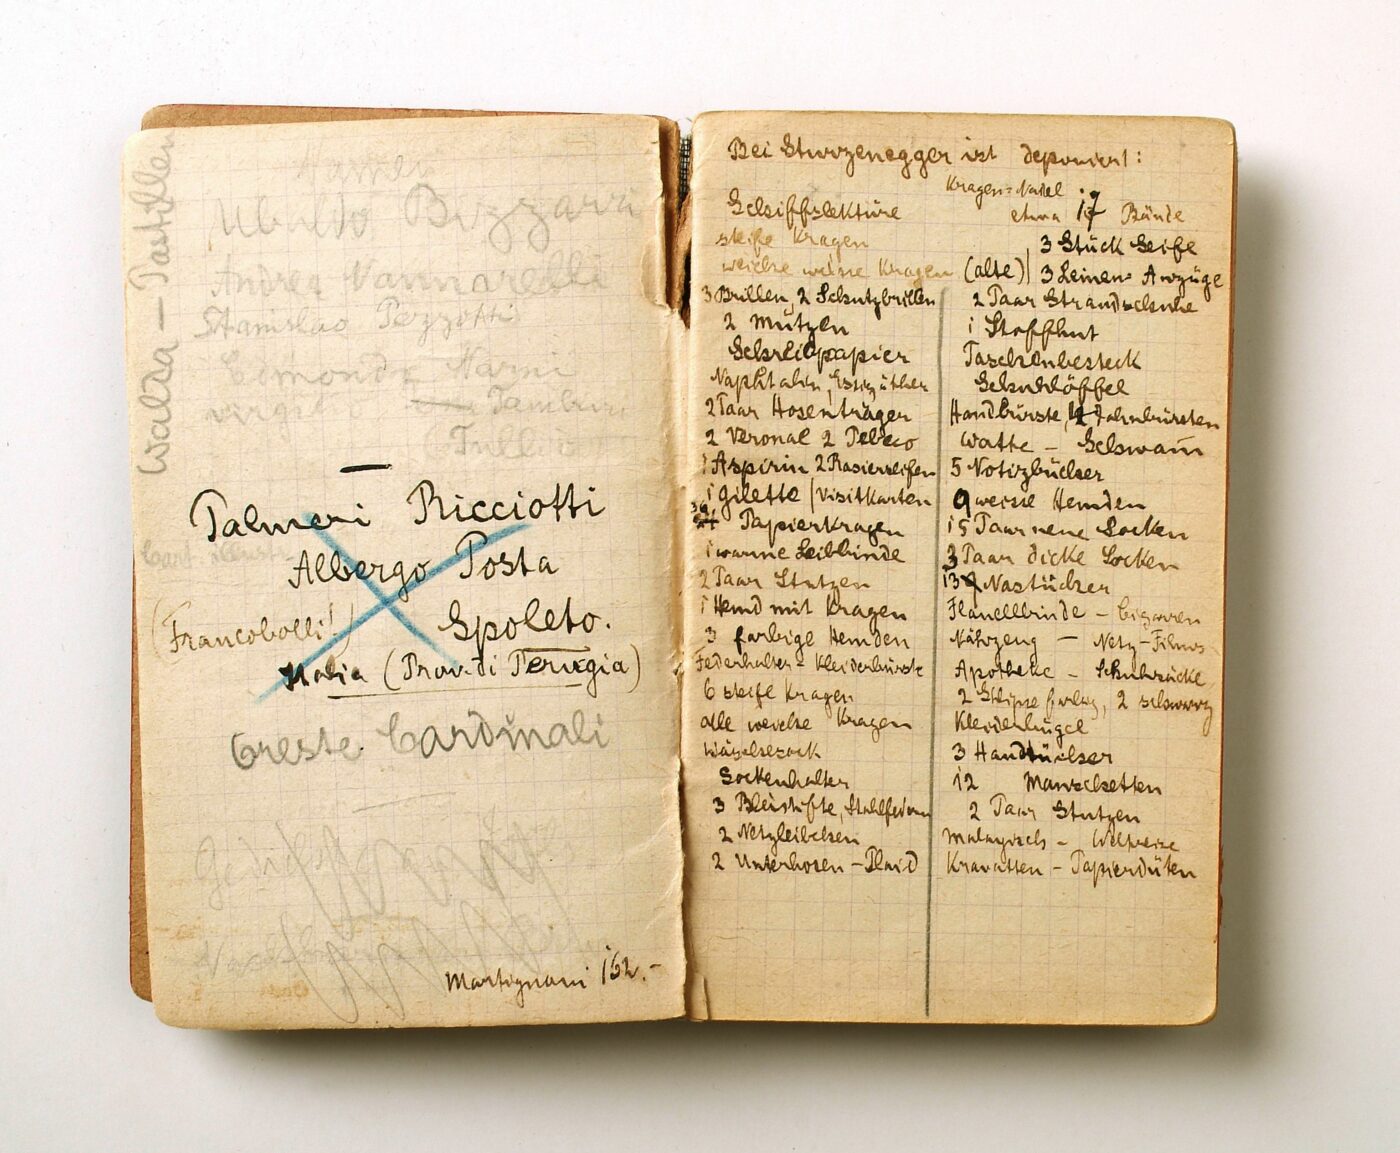 Walda – Pastillen
Ubaldo Bizzarri
Andrea Nannarelli
Stanislao Pezzotti
Narni
Tamburi
Palmeri Ricciotti
Albergo Posta
(Francobolli!)
Spoleto.
Italia (Prov. di Perugia)
Oreste Cardinali
Martignoni 152.–
Bei Sturzenegger ist deponiert:
Schiffslektüre
steife Kragen
weiche weisse Kragen
3 Brillen, 2 Schutzbrillen
2 Mützen
Schreibpapier
Naphtalin, Essigäther
2 Paar Hosenträger
2 Veronal 2 Pebeco
1 Aspirin 2 Rasierseifen
1 Gilette / Visitkarten
Papierkragen
1 warme Leibbinde
2 Paar Stutzen
1 Hemd mit Kragen
3 farbige Hemden
Federhalter – Kleiderbürste
6 steife Kragen
alle weiche Kragen
Wäschesack
Sockenhalter
3 Bleistifte, Stahlfedern
2 Netzleibchen
2 Unterhosen – Plaid
Kragen-Nadel
etwa 17 Bände
3 Stück Seife
(alte) 3 Leinen-Anzüge
2 Paar Strandschuhe
1 Stoffhut
Taschenbesteck
Schuhlöffel
Handbürste, Zahnbürsten
Watte – Schwamm
5 Notizbücher
9 weisse Hemden
15 Paar neue Socken
3 Paar dicke Socken
13 Nastücher
Flanellbinde – Cigarren
Nähzeug – Netz-Filmos
Apotheke – Schuhsäcke
2 Slipse farbig, 2 schwarz
Kleiderbügel
3 Handtücher
12 Manschetten
2 Paar Stutzen
Malayisch – Weltreise
Kravatten – Papierdüten